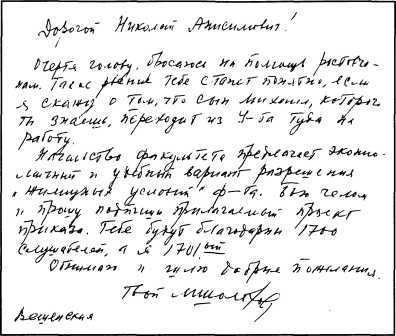 Дорогой Николай Анисимович!
Очертя голову, бросаюсь на помощь ростовча-
нам. Такое рвение тебе станет понятно, если
я скажу о том, что сын Михаил, которого
ты знаешь, переходит из У-та туда на
работу.
Начальство факультета предлагает эконо-
мичный и удобный вариант разрешения
"жилищных условий" ф-та. Бью челом
и прошу подпиши прилагаемый проект
приказа. Тебе будут благодарны 1700
слушателей, а я 1701ый
Обнимаю и шлю добрые пожелания.
Твой М. Шолохов
Вешенская